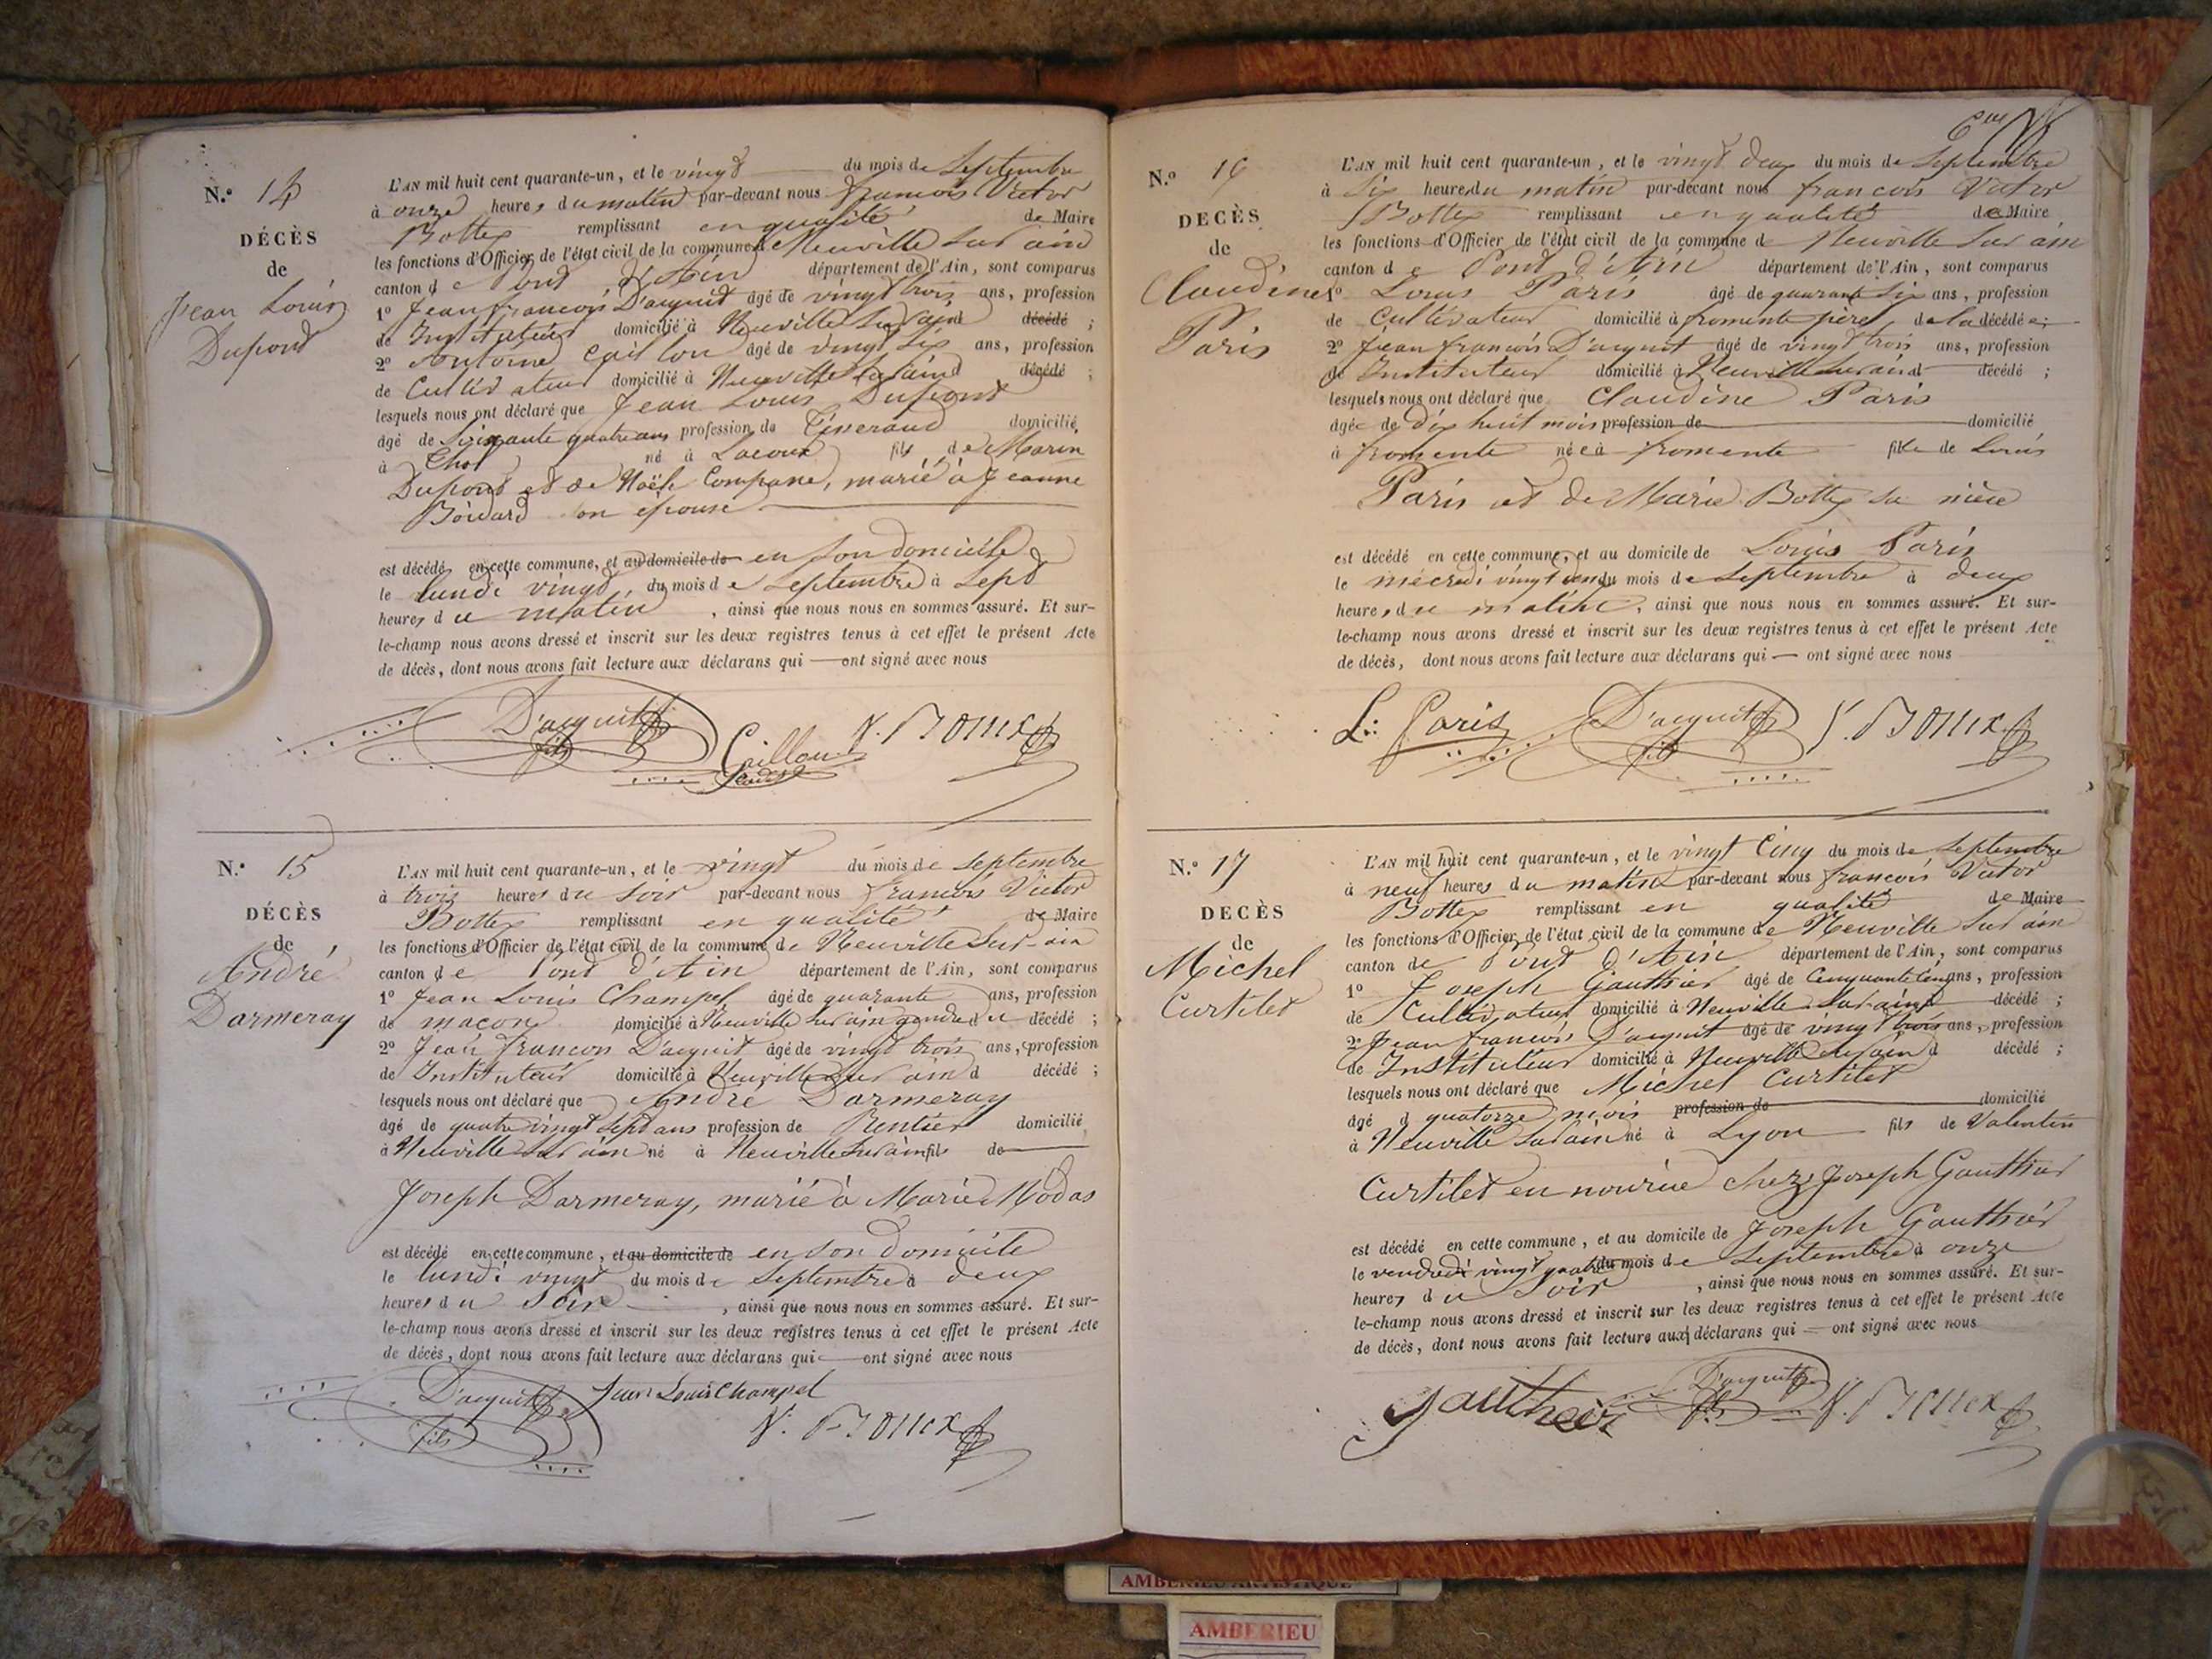 N.° 14
DÉCÈS
de
Jean Louis
Dupond
L'AN mil huit cent quarante-un, et le vingt du mois de Septembre
à onze heures du matin par-devant nous françois Victor
Bottex remplissant en qualité de Maire
les fonctions d'Officier de l'état civil de la commune de Neuville sur ain
canton de Pont d'Ain département de l'Ain, sont comparus
1° Jean francois D'acquit âgé de vingt trois ans, profession
de Instituteur domicilié à Neuville sur ain d décédé ;
2° Antoine Caillon âgé de vingt six ans, profession
de Cultivateur domicilié à Neuville sur ain d décédé ;
lesquels nous ont déclaré que Jean Louis Dupond
âgé de soixante quatre ans profession de Tisserand domicilié
à Chol né à Lacoux fils de Marin
Dupond et de Noële Compane, marié à Jeanne
son épouse
est décédé en cette commune, et au domicile de en son domicile
le lundi vingt du mois de Septembre à Sept
heures du matin, ainsi que nous nous en sommes assuré. Et sur-
le-champ nous avons dressé et inscrit sur les deux registres tenus à cet effet le présent Acte
de décès, dont nous avons fait lecture aux déclarans qui — ont signé avec nous
D'acquit fils Caillon V. Bottex
N.° 15
DÉCÈS
de
André
Darmeray
L'AN mil huit cent quarante-un, et le vingt du mois de Septembre
à trois heures du soir par-devant nous françois Victor
Bottex remplissant en qualité de Maire
les fonctions d'Officier de l'état civil de la commune de Neuville sur-ain
canton de Pont d'Ain département de l'Ain, sont comparus
1° Jean Louis Champel âgé de quarante ans, profession
de macon domicilié à Neuville sur ain gendre du décédé ;
2° Jean françois D'acquit âgé de vingt trois ans, profession
de Instituteur domicilié à Neuville sur ain d décédé ;
lesquels nous ont déclaré que André Darmeray
âgé de quatre vingt sept ans profession de Rentier domicilié
à Neuville sur ain né à Neuville sur ain fils de
Joseph Darmeray, marié à Marie Modas
est décédé en cette commune, et au domicile de en son domicile
le lundi vingt du mois de Septembre à deux
heures du Soir, ainsi que nous nous en sommes assuré. Et sur-
le-champ nous avons dressé et inscrit sur les deux registres tenus à cet effet le présent Acte
de décès, dont nous avons fait lecture aux déclarans qui — ont signé avec nous
D'acquit fils Jean Louis Champel
V. Bottex
N.° 16
DECÈS
de
Claudine
Paris
L'AN mil huit cent quarante-un, et le vingt deux du mois de Septembre
à Six heures du matin par-devant nous françois Victor
Bottex remplissant en qualité de Maire
les fonctions d'Officier de l'état civil de la commune de Neuville sur ain
canton de Pont d'Ain département de l'Ain, sont comparus
1° Louis Paris âgé de quarante six ans, profession
de Cultivateur domicilié à fromente père de la décédée ;
2° Jean françois D'acquit âgé de vingt trois ans, profession
de Instituteur domicilié à Neuville sur ain d décédé ;
lesquels nous ont déclaré que Claudine Paris
âgée de dix huit mois profession de domicilié
à fromente née à fromente fille de Louis
Paris et de Marie Bottex sa mère
est décédé en cette commune, et au domicile de Louis Paris
le mécredi vingt deux du mois de Septembre à deux
heures du matin, ainsi que nous nous en sommes assuré. Et sur-
le-champ nous avons dressé et inscrit sur les deux registres tenus à cet effet le présent Acte
de décès, dont nous avons fait lecture aux déclarans qui — ont signé avec nous
L: Paris D'acquit fils V. Bottex
N.° 17
DECÈS
de
Michel
Curtilet
L'AN mil huit cent quarante-un, et le vingt Cinq du mois de Septembre
à neuf heures du matin par-devant nous françois Victor
Bottex remplissant en qualité de Maire
les fonctions d'Officier de l'état civil de la commune de Neuville sur ain
canton de Pont d'Ain département de l'Ain, sont comparus
1° Joseph Gauthier âgé de Cinquante cinq ans, profession
de Cultivateur domicilié à Neuville sur ain d décédé ;
2° Jean francois D'acquit âgé de vingt trois ans, profession
de Instituteur domicilié à Neuville sur ain d décédé ;
lesquels nous ont déclaré que Michel Curtilet
âgé d quatorze mois profession de domicilié
à Neuville sur ain né à Lyon fils de Valentin
Curtilet en nourice chez Joseph Gauthier
est décédé en cette commune, et au domicile de Joseph Gauthier
le vendredi vingt quatre du mois de Septembre à onze
heures du Soir, ainsi que nous nous en sommes assuré. Et sur-
le-champ nous avons dressé et inscrit sur les deux registres tenus à cet effet le présent Acte
de décès, dont nous avons fait lecture aux déclarans qui — ont signé avec nous
Gautheir D'acquit fils V. Bottex
AMBERIEU ARTISTIQUE
AMBERIEU